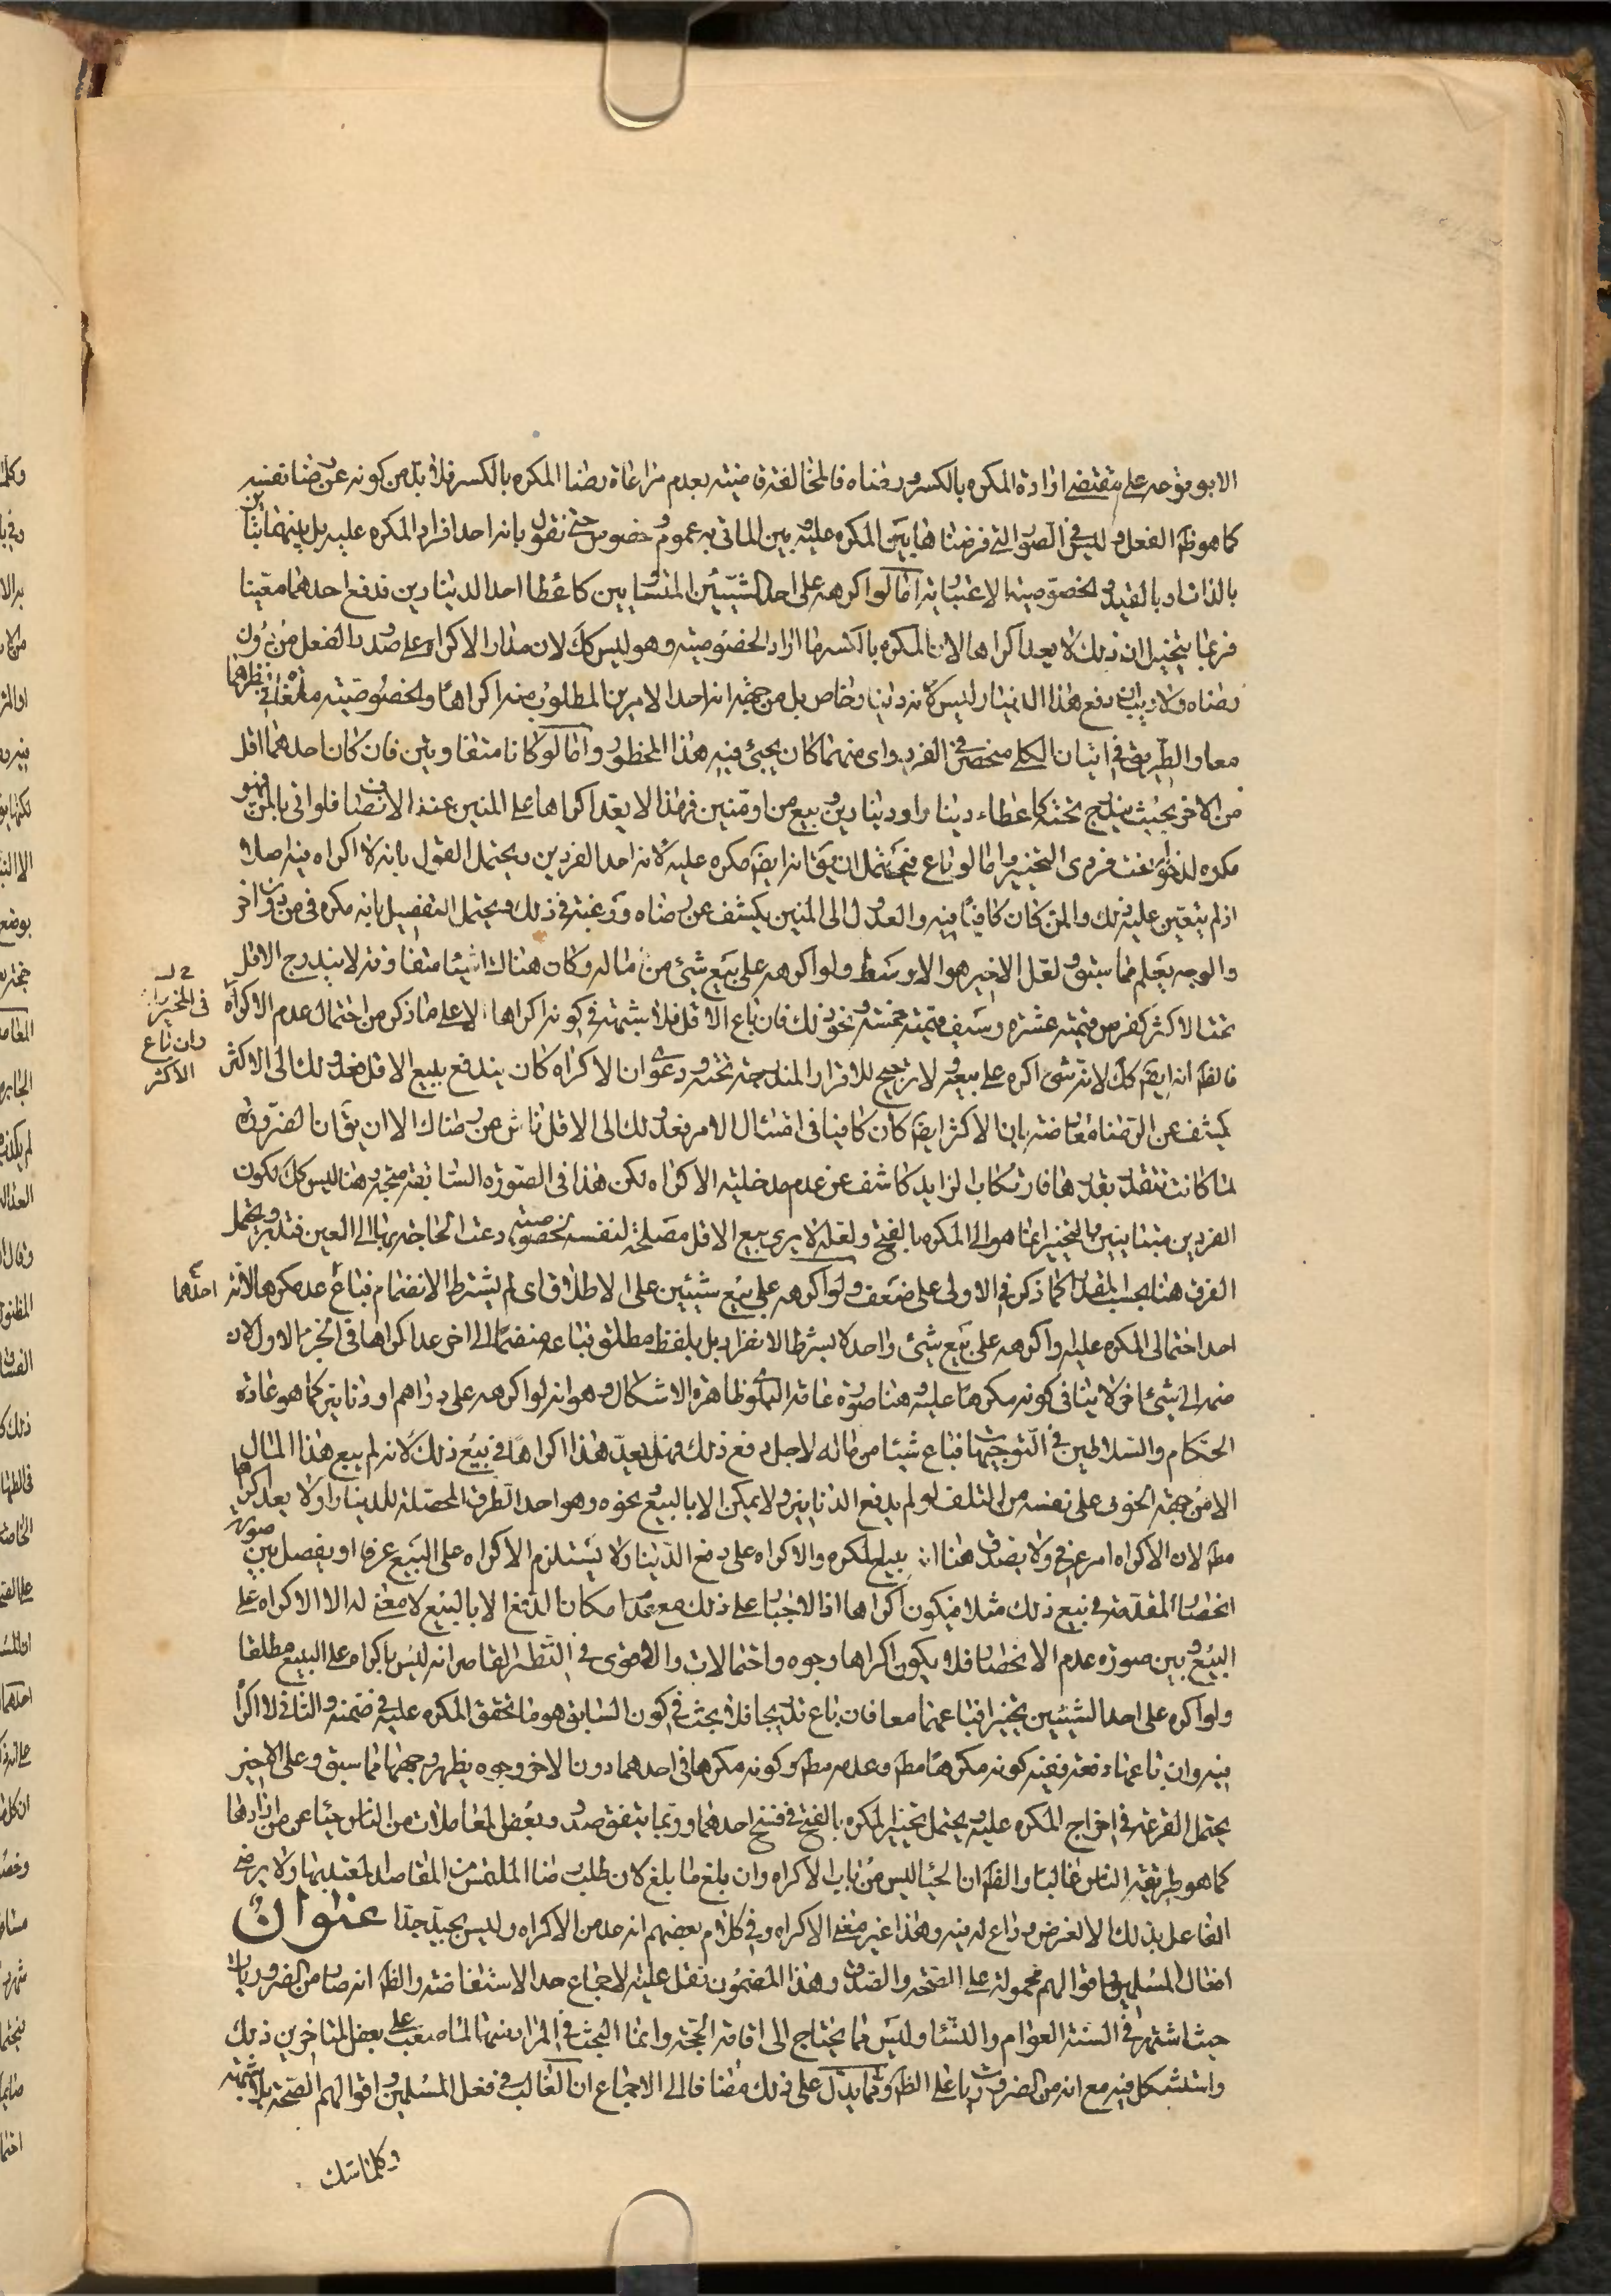 الا بوقوعه على مقتضى ارادة المكره بالكسر ورضاه فالمخالفة قاضية بعدم مراعاة رضا المكره بالكسر فلا بد من كونه عن رضا نفسه
كما هو ظ الفعل وليس في الصور التي فرضناها بين المكره عليه وبين الماتى به عموم وخصوص حتى نقول بانه احد افراد المكره عليه بل بينهما تباين
بالذات او بالقيد والخصوصية الاعتبارية اما لو اكرهه على احد الشيئين المتساويين كاعطا احد الدينارين فدفع احدهما معينا
فربما يتخيل ان ذلك لا يعد اكراها لان المكره بالكسر ما اراد الخصوصية وهو ليس كك لان مدار الاكراه على صدور الفعل من دون
رضاه ولا ريب ان دفع هذا الدينار ليس لانه دينار خاص بل من جهة انه احد الامرين المطلوب منه اكراها والخصوصية ملغاة في نظرهما
معا والطريق في اتيان الكلي منحصر في الفرد واى منهما كان يجيئ فيه هذا المحظور واما لو كانا متفاوتين فان كان احدهما اقل
من الاخر بحيث يندرج تحته كاعطاء دينار او دينارين وبيع من او منين فهذا لا يعد اكراها على المنين عند الانصاف فلو اتى بالمن فهو
مكره لدخوله تحت فردى التخيير واما لو باع فيحتمل ان يق انه ايضً مكره عليه لانه احد الفردين ويحتمل القول بانه لا اكراه فيه اصلا
اذ لم يتعين عليه ذلك والمن كان كافيا فيه والعدول الى المنين يكشف عن رضاه ورغبته في ذلك ويحتمل التفصيل بانه مكره في من دون اخر
والوجه يعلم مما سبق ولعل الاخير هو الاوسط ولو اكرهه على بيع شيئ من ماله وكان هناك اشيئا متفاوته لا يندرج الاقل
تحت الاكثر كفرس قيمته عشره وسيف قيمته خمسة ونحو ذلك فان باع الاقل فلا شبهة في كونه اكراها الا على ما ذكر من احتمال عدم الاكراه
في المخير
وان باع
الاكثر
فالظ انه ايضً كك لانه شئ اكره على بيعه ولا ترجيح للافراد المندرجة تحته ودعوى ان الاكراه كان يندفع ببيع الاقل فعدوله الى الاكثر
يكشف عن الرضا معارضة بان الاكثر ايضً كان كافيا في امتثال الامر فعدوله الى الاقل ناش من رضاه الا ان يق ان الضرورة
لما كانت تتقدر بقدرها فارتكاب الزايد كاشف عن عدم مدخلية الاكراه لكن هذا في الصورة السابقة متجه وهنا ليس كك لكون
الفردين متباينين والتخيير انما هو الى المكره بالفتح ولعله لا يرى بيع الاقل مصلحة لنفسه لخصوصية دعت الحاجة بها الى العين فتدبر ويحتمل
الفرق هنا بحسب المقدار كما ذكر في الاولى على ضعف ولو اكرهه على بيع شيئين على الاطلاق اى لم يشترط الانضمام فباع احدهما عد مكرها لانه
احد احتمالى المكره عليه ولو اكرهه على بيع شيئ واحد لا بشرط الانفراد بل بلفظ مطلق فباعه منضما الى اخر عد اكراها في الجزء الاول لان
ضمه الى شيئ اخر لا ينافى كونه مكرها عليه وهنا صورة عامة البلوى ظاهرة الاشكال وهو انه لو اكرهه على دراهم او دنانير كما هو عادة
الحكام والسلاطين في التوجيهات فباع شيئا من ماله لاجل دفع ذلك فهل يعد هذا اكراها في بيع ذلك لانه لم يبع هذا المال
الا من جهة الخوف على نفسه من التلف لو لم يدفع الدنانير ولا يمكن الا بالبيع ونحوه وهو احد الطرق المحصلة للدينار او لا يعد اكراها
مطً لان الاكراه امر عرفى ولا يصدق هنا انه بيع المكره والاكراه على دفع الدينار لا يستلزم الاكراه على البيع عرفا او يفصل بين صورة
انحصار المقدمة في بيع ذلك مثلا فيكون اكراها اذ الاجبار على ذلك مع عدم امكان الدفع الا بالبيع لا معنى له الا الاكراه على
البيع وبين صورة عدم الانحصار فلا يكون اكراها وجوه واحتمالات والاقوى في النظر القاصر انه ليس باكراه على البيع مطلقا
ولو اكره على احد الشيئين تخييرا فباعهما معا فان باع تدريجا فلا بحث في كون السابق هو ما تحقق المكره عليه في ضمنه والثانى لا اكراه
فيه وان باعهما دفعة ففيه كونه مكرها مطً وعدمه مطً وكونه مكرها في احدهما دون الاخر وجوه يظهر وجهها مما سبق وعلى الاخير
يحتمل القرعة في اخراج المكره عليه ويحتمل تخيير المكره بالفتح في فسخ احدهما وربما يتفق صدور بعض المعاملات من الناس حيئا عمن ارادها
كما هو طريقة الناس غالبا والظ ان الحيا ليس من باب الاكراه وان بلغ ما بلغ لان طلب رضا الملتمس من المقاصد المعتد بها ولا يرضى
الفاعل بذلك الا لغرض وداع له فيه وهذا غير معنى الاكراه وفي كلام بعضهم انه عده من الاكراه وليس بجيد جدا عنوان
افعال المسلمين واقوالهم محمولة على الصحة والصدق وهذا المضمون نقل عليه الاجماع حد الاستفاضة والظ انه صار من الضروريات
حيث اشتهر في السنة العوام والنساء وليس مما يحتاج الى اقامة الحجة وانما البحث في المراد منه لما صعب على بعض المتاخرين ذلك
واستشكل فيه مع انه من الضروريات على الظ ومما يدل على ذلك مضافا الى الاجماع ان الغالب في فعل المسلمين واقوالهم الصحة بلا شبهة
وكلما شك